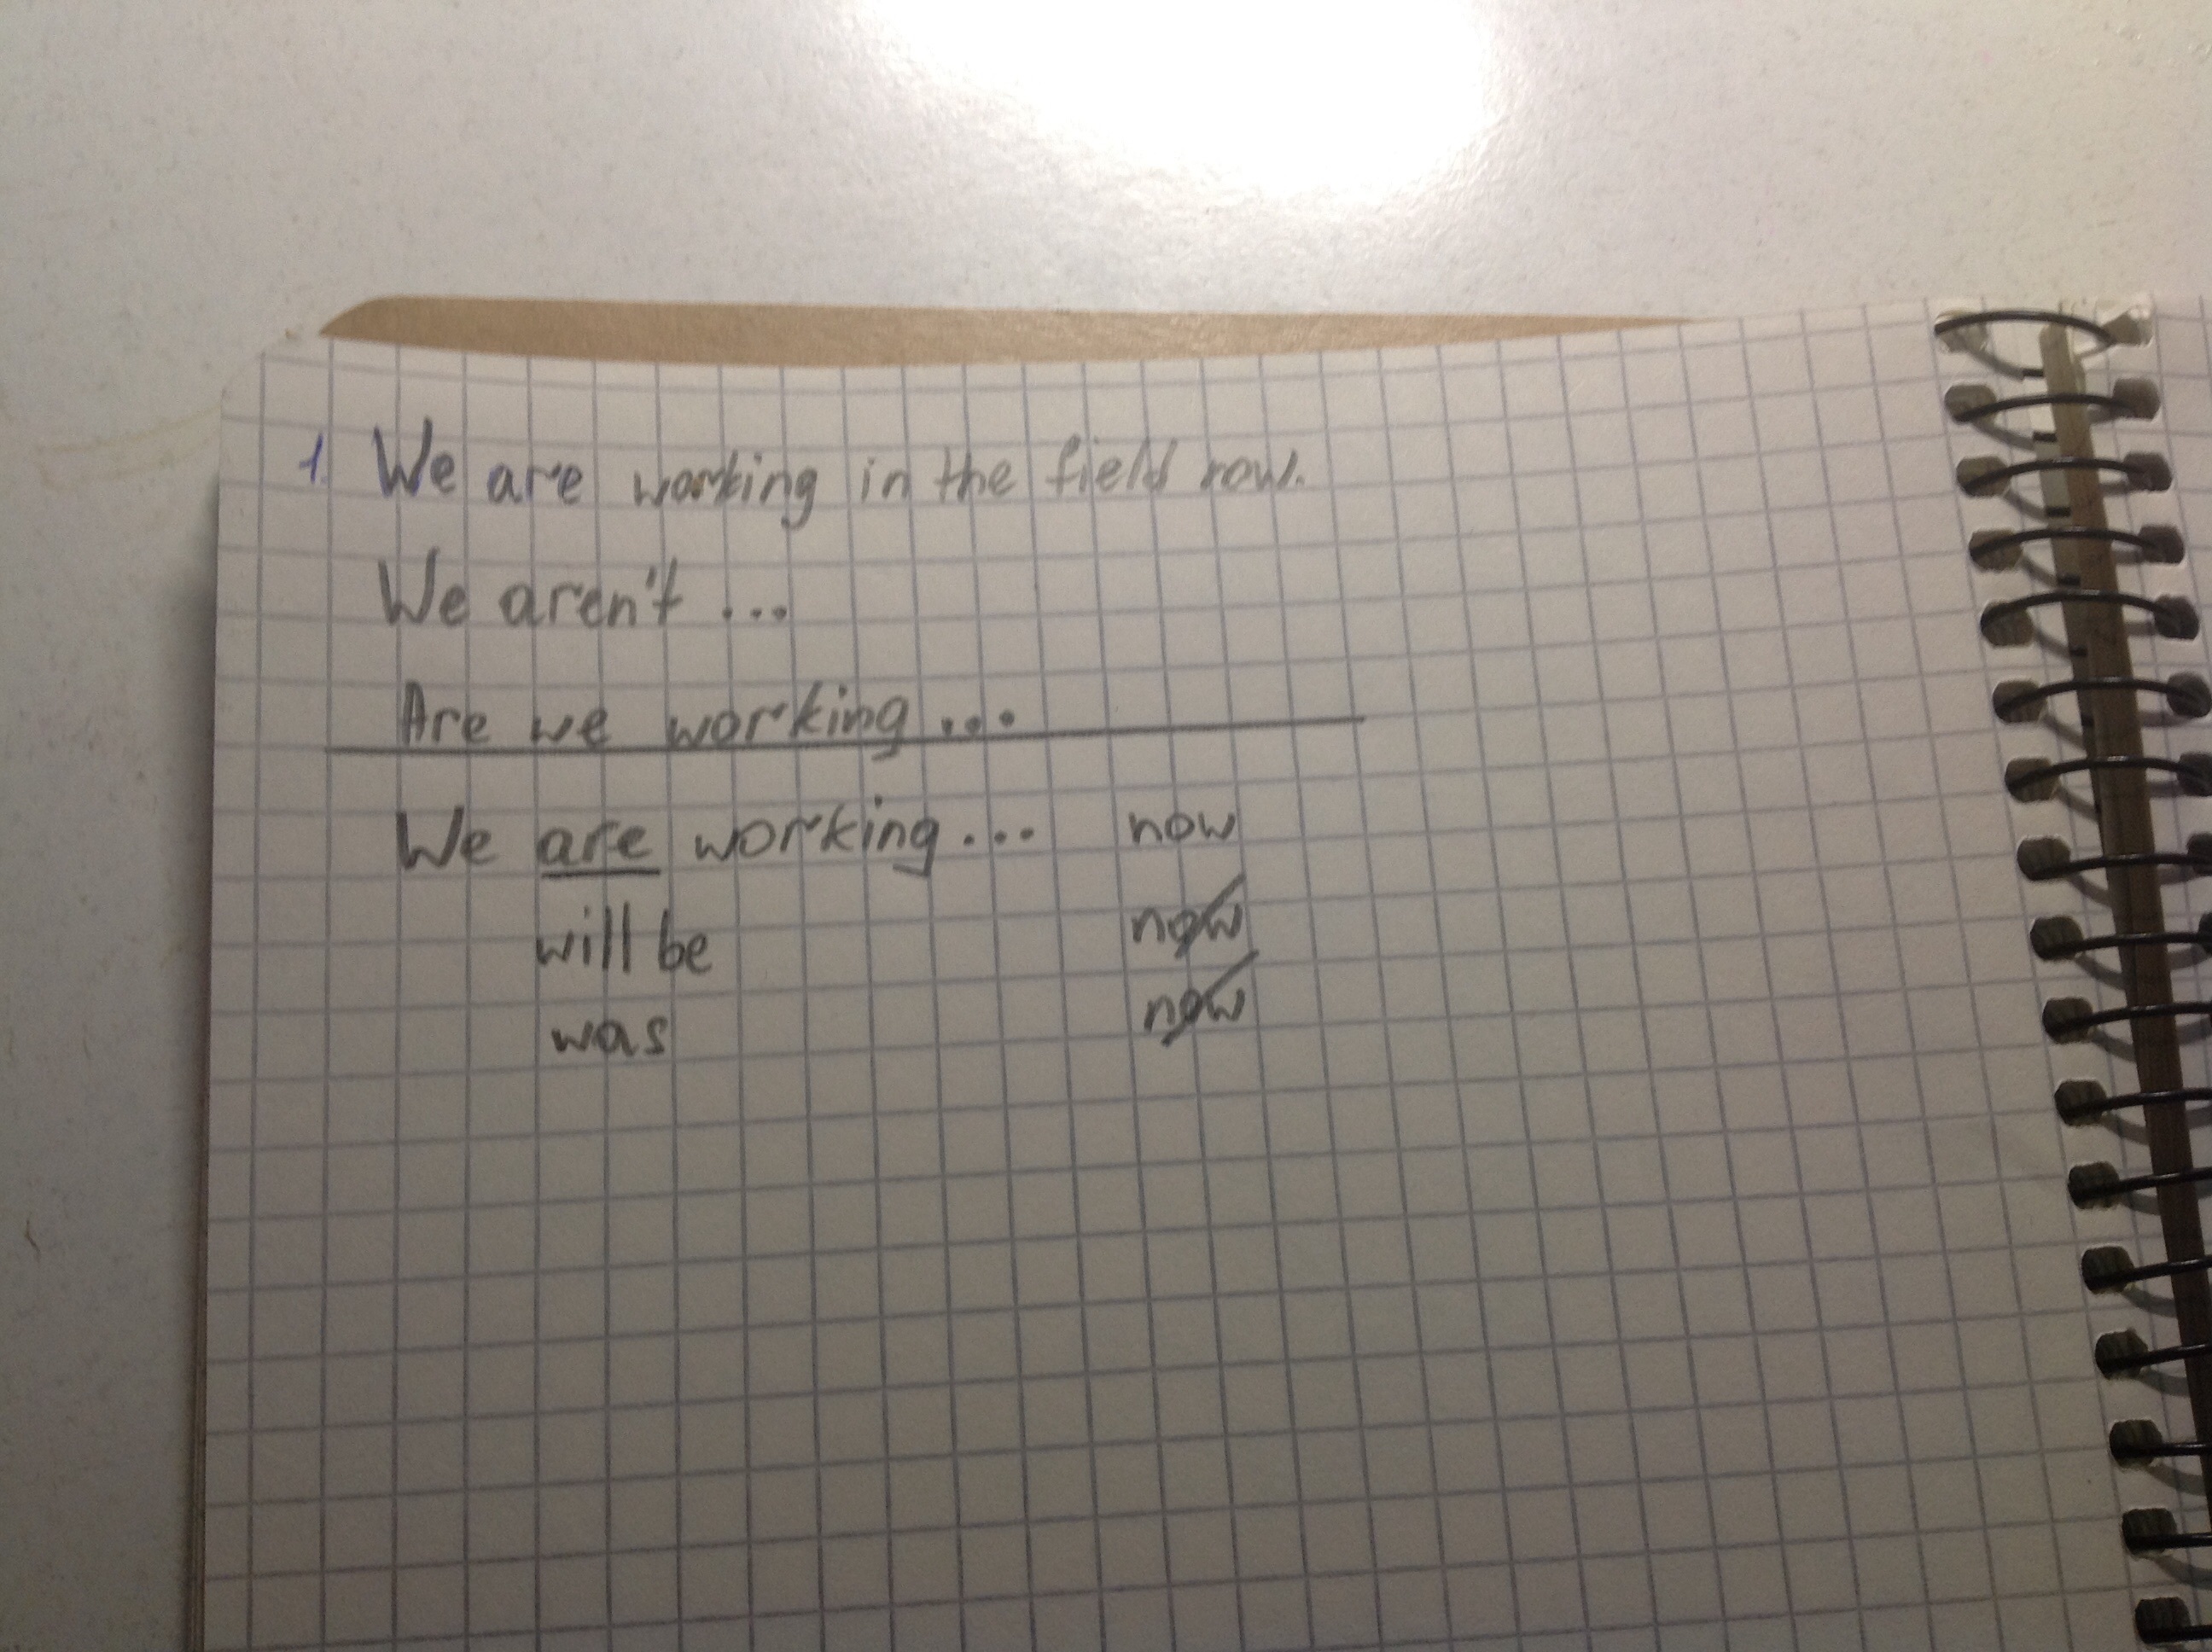 1. We are working in the field now.
We aren't ...
Are we working ...
We are working ... now
will be now
was now